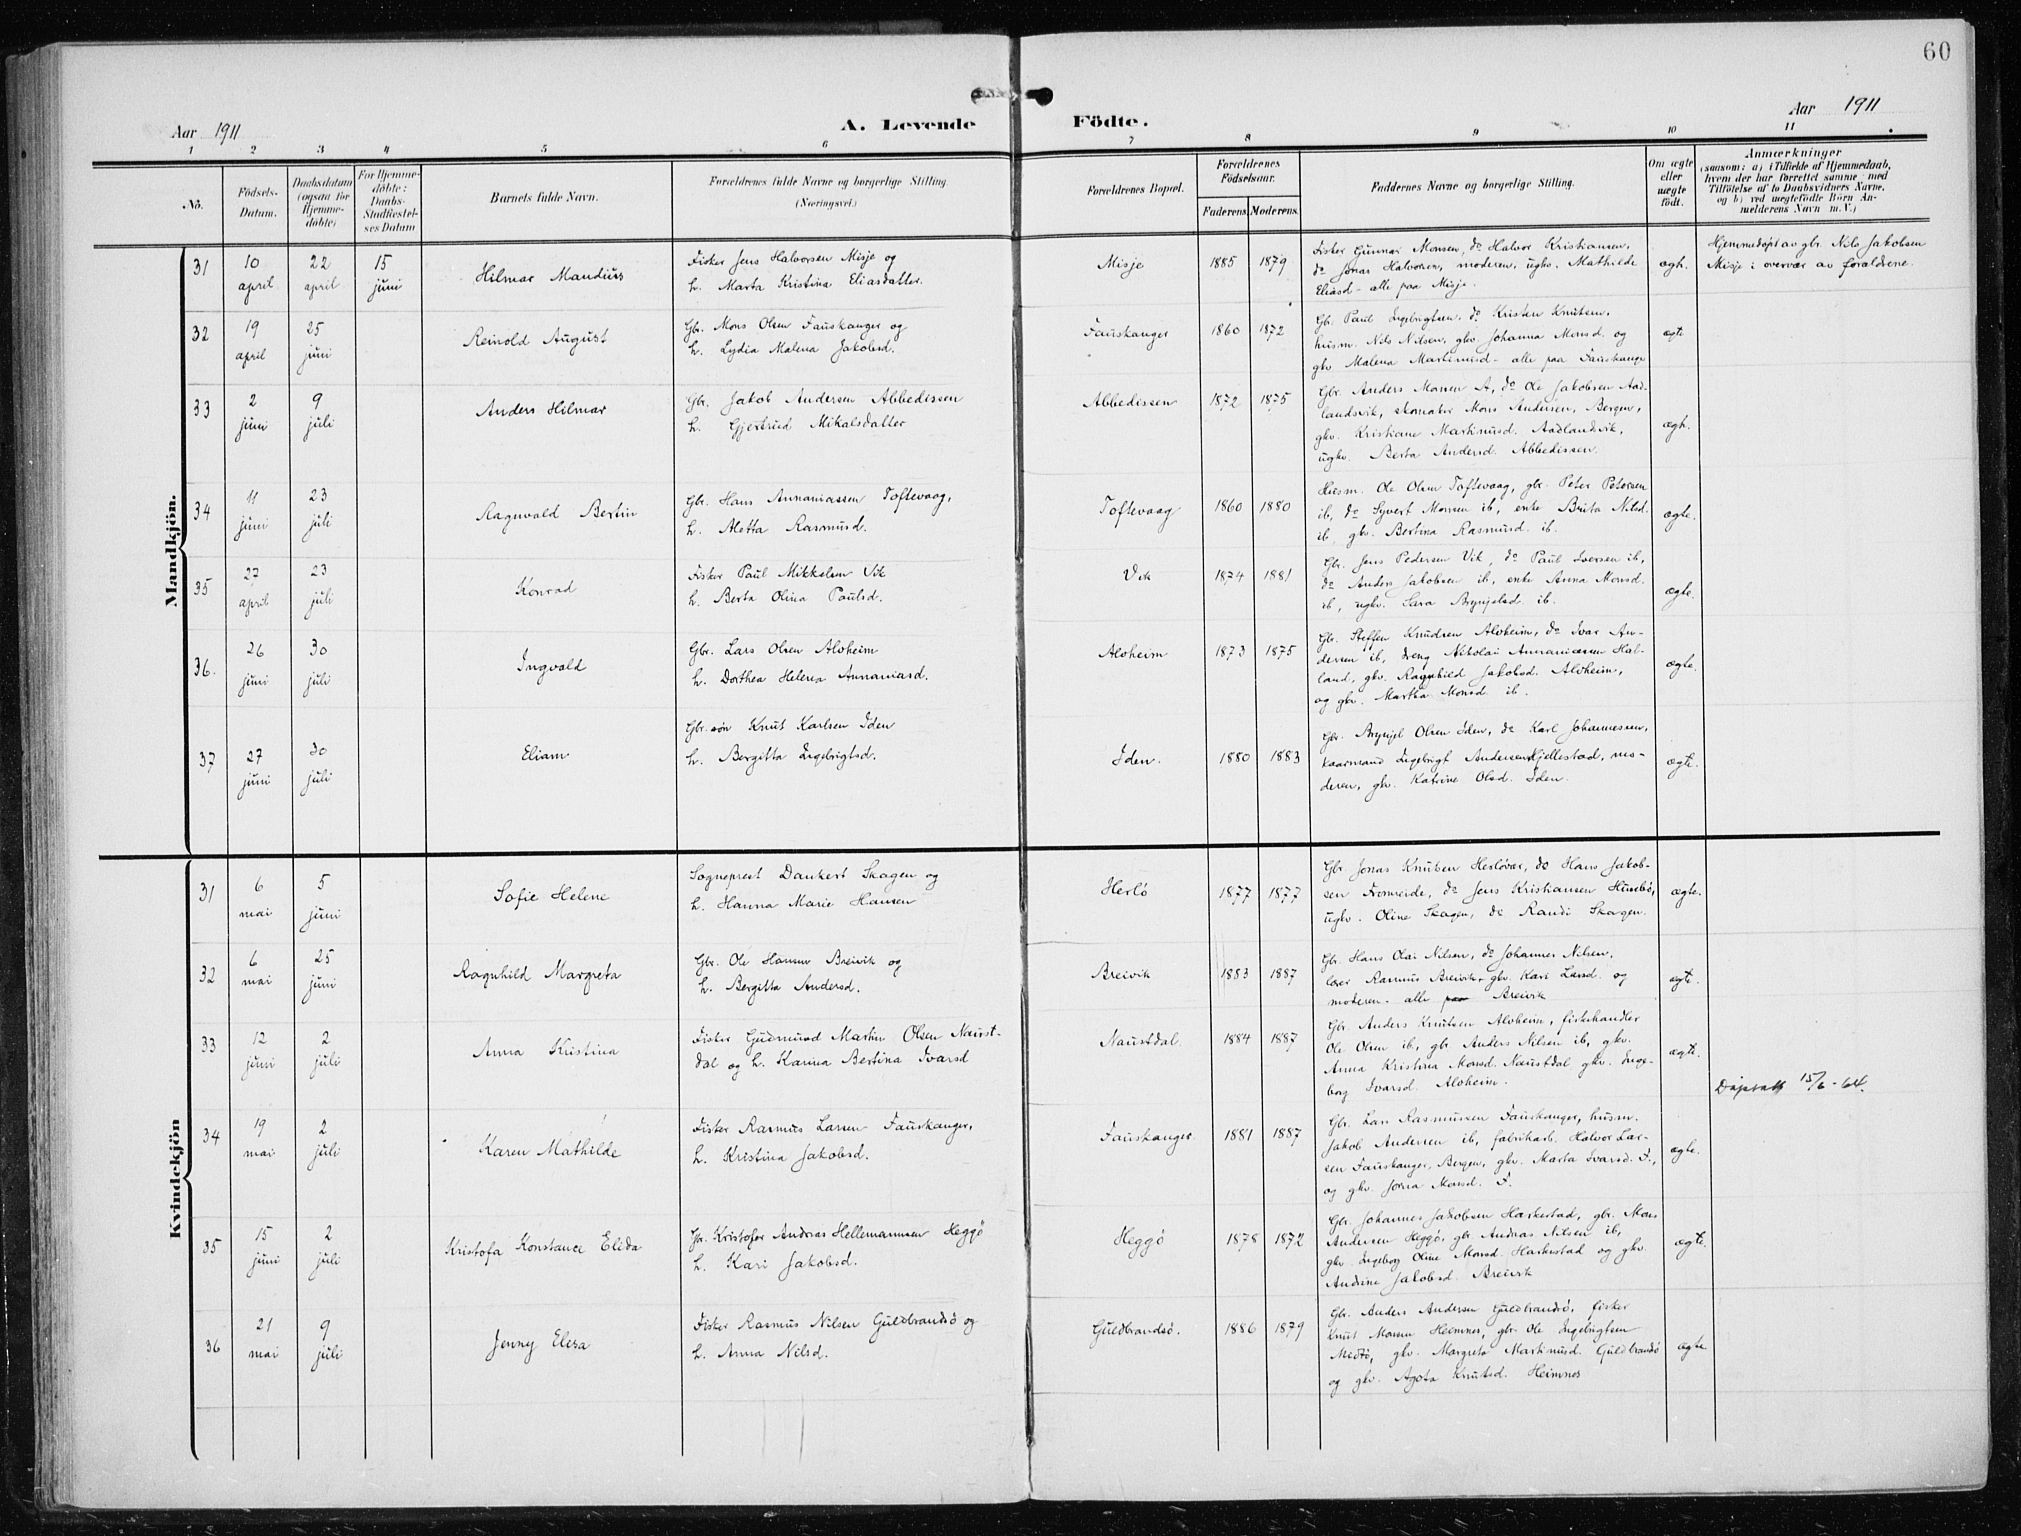 60
Aar 1911
A. Levende
Födte.
Aar 1911
1 2 3 4 5 6 7 8 9 10 11
No.
Födsels-
Datum.
Daabsdatum
(ogsaa for
Hjemme-
döbte)
For Hjemme-
döbte:
Daabs-
Stadfæstel-
ses Datum
Barnets fulde Navn.
Forældrenes fulde Navne og borgerlige Stilling.
(Næringsvei.)
Forældrenes Bopæl.
Forældrenes
Födselsaar.
Faderens. Moderens.
Faddernes Navne og borgerlige Stilling.
Om ægte
eller
uægte
födt.
Anmærkninger
(saasom: a) i Tilfælde af Hjemmedaab,
hvem der har forrettet samme med
Tilföielse af to Daabsvidners Navne,
og b) ved uægtefödte Börn An-
melderens Navn m. V.)
Mandkjön.
31
10
april
22
april
15
juni
Hilmar Mandius
Fisker Jens Halvorsen Misje og
h. Marta Kristina Eliasdatter.
Misje
1885 1879
Fisker Gunnar Monsen, do Halvor Kristiansen,
do Jonas Halvorsen, moderen, ugkv. Mathilde
Eliasd - alle paa Misje.
ægh.
Hjemmedøpt av gbr. Nils Jakobsen
Misje i overvær av forældrene.
32
19
april
25
juni
Reinold August
Gbr. Mons Olsen Fauskanger og
h. Lydia Malena Jakobsd.
Fauskanger
1860 1872
Gbr. Paul Ingebrigtsen, do Kristen Knutsen,
husm. Nils Nilsen, gkv Johanna Monsd. og
gkv Malena Martinusd - alle paa Fauskange
ægte
33
2
juni
9
juli
Anders Hilmar
Gbr. Jakob Andersen Abbedissen
h. Gjertrud Mikalsdatter
Abbedissen
1872 1875
Gbr. Anders Monsen A, do Ole Jakobsen Aad-
landsvik, skomaker Mons Andersen, Bergen,
gkv. Kristiane Martinusd. Aadlandsvik,
ugkv. Berta Andersd. Abbedissen.
ægh.
34
11
juni
23
juli
Ragnvald Bertin
Gbr. Hans Annaniassen Toftevaag,
h. Aletta Rasmusd.
Toftevaag
1860 1880
Husm. Ole Olsen Toftevaag, gbr. Peter Petersen
ib, do Syvert Monsen ib, enke Brita Nilsd.
ib, gkv. Bertina Rasmusd. ib.
ægte.
35
27
april
23
juli
Konrad
Fisker Paul Mikkelsen Vik
h. Berta Olina Paulsd.
Vik
1874 1881
Gbr. Jens Pedersen Vik, do Paul Iversen ib,
do Anders Jakobsen ib, enke Anna Monsd.
ib, ugkv. Sara Brynjelsd ib.
ægte.
36.
26
juni
30
juli
Ingvald
Gbr. Lars Olsen Alvheim
h. Dorthea Helena Annaniasd.
Alvheim
1873 1875
Gbr. Steffen Knudsen Alvheim, do Ivar An-
dersen ib, dreng Nikolai Annaniassen Hal-
land, gkv. Ragnhild Jakobsd. Alvheim,
og gkv. Martha Monsd ib.
ægte.
37
27
juni
30
juli
Eliam
Gbr.søn Knut Karlsen Iden
h. Bergitta Ingebrigtsd.
Iden.
1880 1883
Gbr. Brynjel Olsen Iden, do Karl Johannessen,
kaarmand Ingebrigt Andersen Hjellestad, mo-
deren, gkv. Katrine Olsd. Iden.
ægte.
Kvindekjön
31
6
mai
5
juni
Sofie Helene
Sogneprest Dankert Skagen og
h. Hanna Marie Hansen
Herlö
1877 1877
Gbr. Jonas Knutsen Herløvær, do Hans Jakob-
sen Fromreide, do Jens Kristiansen Husebö,
ugkv. Oline Skagen, do Randi Skagen.
ægte.
32
6
mai
25
juni
Ragnhild Margreta
Gbr. Ole Hansen Breivik og
h. Bergitta Andersd.
Breivik
1883 1887
Gbr. Hans Olai Nilsen, do Johannes Nilsen,
lærer Rasmus Breivik, gkv Kari Larsd. og
moderen. alle paa Breivik
ægte.
33
12
juni
2
juli
Anna Kristina
Fisker Gudmund Martin Olsen Naust-
dal og h. Karina Bertina Ivarsd
Naustdal.
1884 1887
Gbr Anders Knutsen Alvheim, fiskehandler
Ole Olsen ib, gbr Anders Nilsen ib, gkv.
Anna Kristina Monsd. Naustdal gkv. Inge-
borg Ivarsd. Alvheim.
ægte.
Dåpsatt 15/6-64.
34
19
mai
2
juli
Karen Mathilde
Fisker Rasmus Larsen Fauskanger,
h. Kristina Jakobsd.
Fauskanger.
1881 1887
Gbr. Lars Rasmussen Fauskanger, husm.
Jakob Andersen ib, fabrikarb. Halvor Lar-
sen Fauskanger, Bergen, gkv. Marta Ivarsd. F.,
og gkv. Jorna Monsd. F.
ægte.
35
15
juni
2
juli
Kristofa Konstance Elida
Gbr. Kristofer Andreas Hellemannsen Heggö
h. Kari Jakobsd.
Heggö
1878 1872
Gbr. Johannes Jakobsen Harkestad, gbr. Mons
Andersen Heggö, gbr Andreas Nilsen ib,
gkv. Ingeborg Oline Monsd. Harkestad og gkv.
Andrine Jakobsd. Breivik
ægte.
36
21
mai
9
juli
Jenny Elesa
Fisker Rasmus Nilsen Guldbrandsö og
h. Anna Nilsd.
Guldbrandsö.
1886 1879
Gbr. Anders Andersen Guldbrandsö, fisker
Knut Monsen Heimnes, gbr Ole Ingebrigtsen
Medtö, gkv. Margreta Martinusd. Guldbrandsö
og gkv. Agota Knutsd. Heimnes
ægte